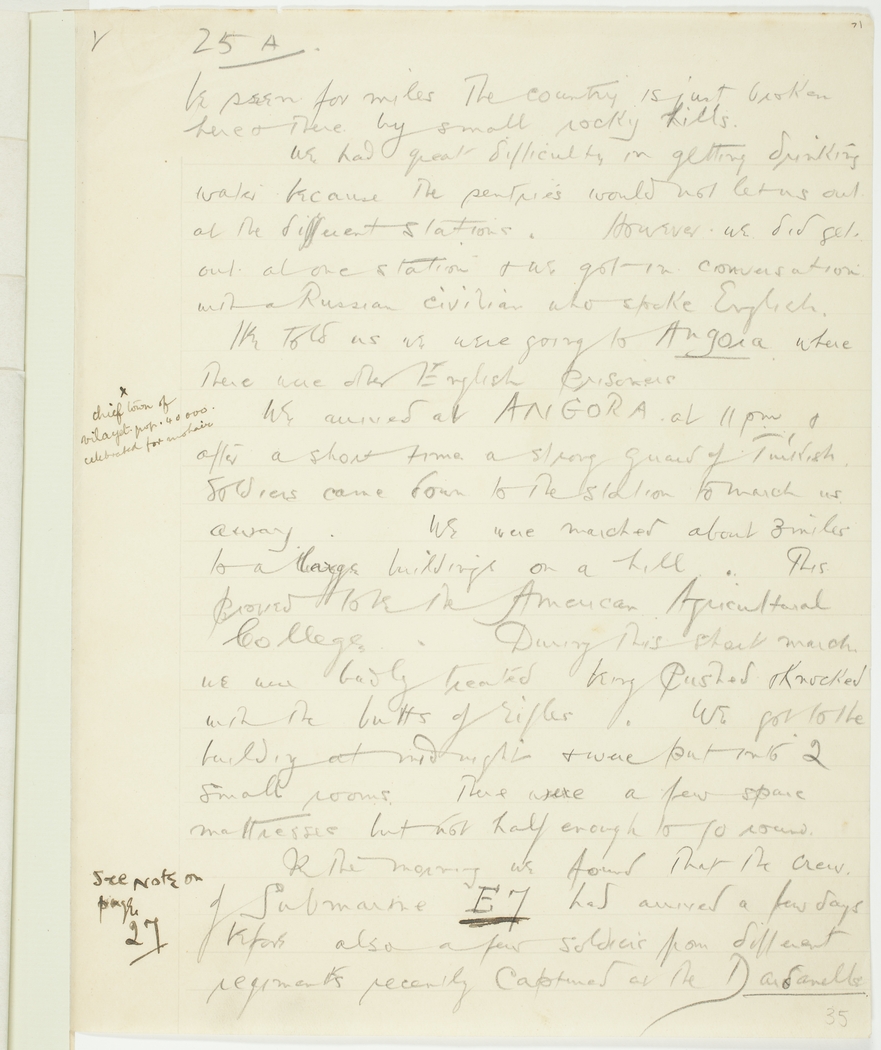 25 A.
be seen for miles The country is just broken
here & there by small rocky hills.
We had great difficulty in getting drinking
water because the sentries would not let us out
at the different stations. However we did get
out at one station & we got in conversation
with a Russian civilian who spoke English.
He told us we were going to Angora where
there were other English Prisoners
x
chief town of
vilayet. pop. 40000.
celebrated for mohair
We arrived at ANGORA at 11 pm &
after a short time a strong guard of Turkish
Soldiers came down to the station to march us
away. We were marched about 3 miles
to a large buildings on a hill. This
proved to be the American Agricultural
College. During this short march
we were badly treated being Pushed & Knocked
with the butts of rifles. We got to the
building at midnight & were put into 2
small rooms. There were a few spare
mattresses but not half enough to go round.
In the morning we found that the crew
See note on
page
27
of Submarine E7 had arrived a few days
before also a few soldiers from different
regiments recently Captured at the Dardanelles
35